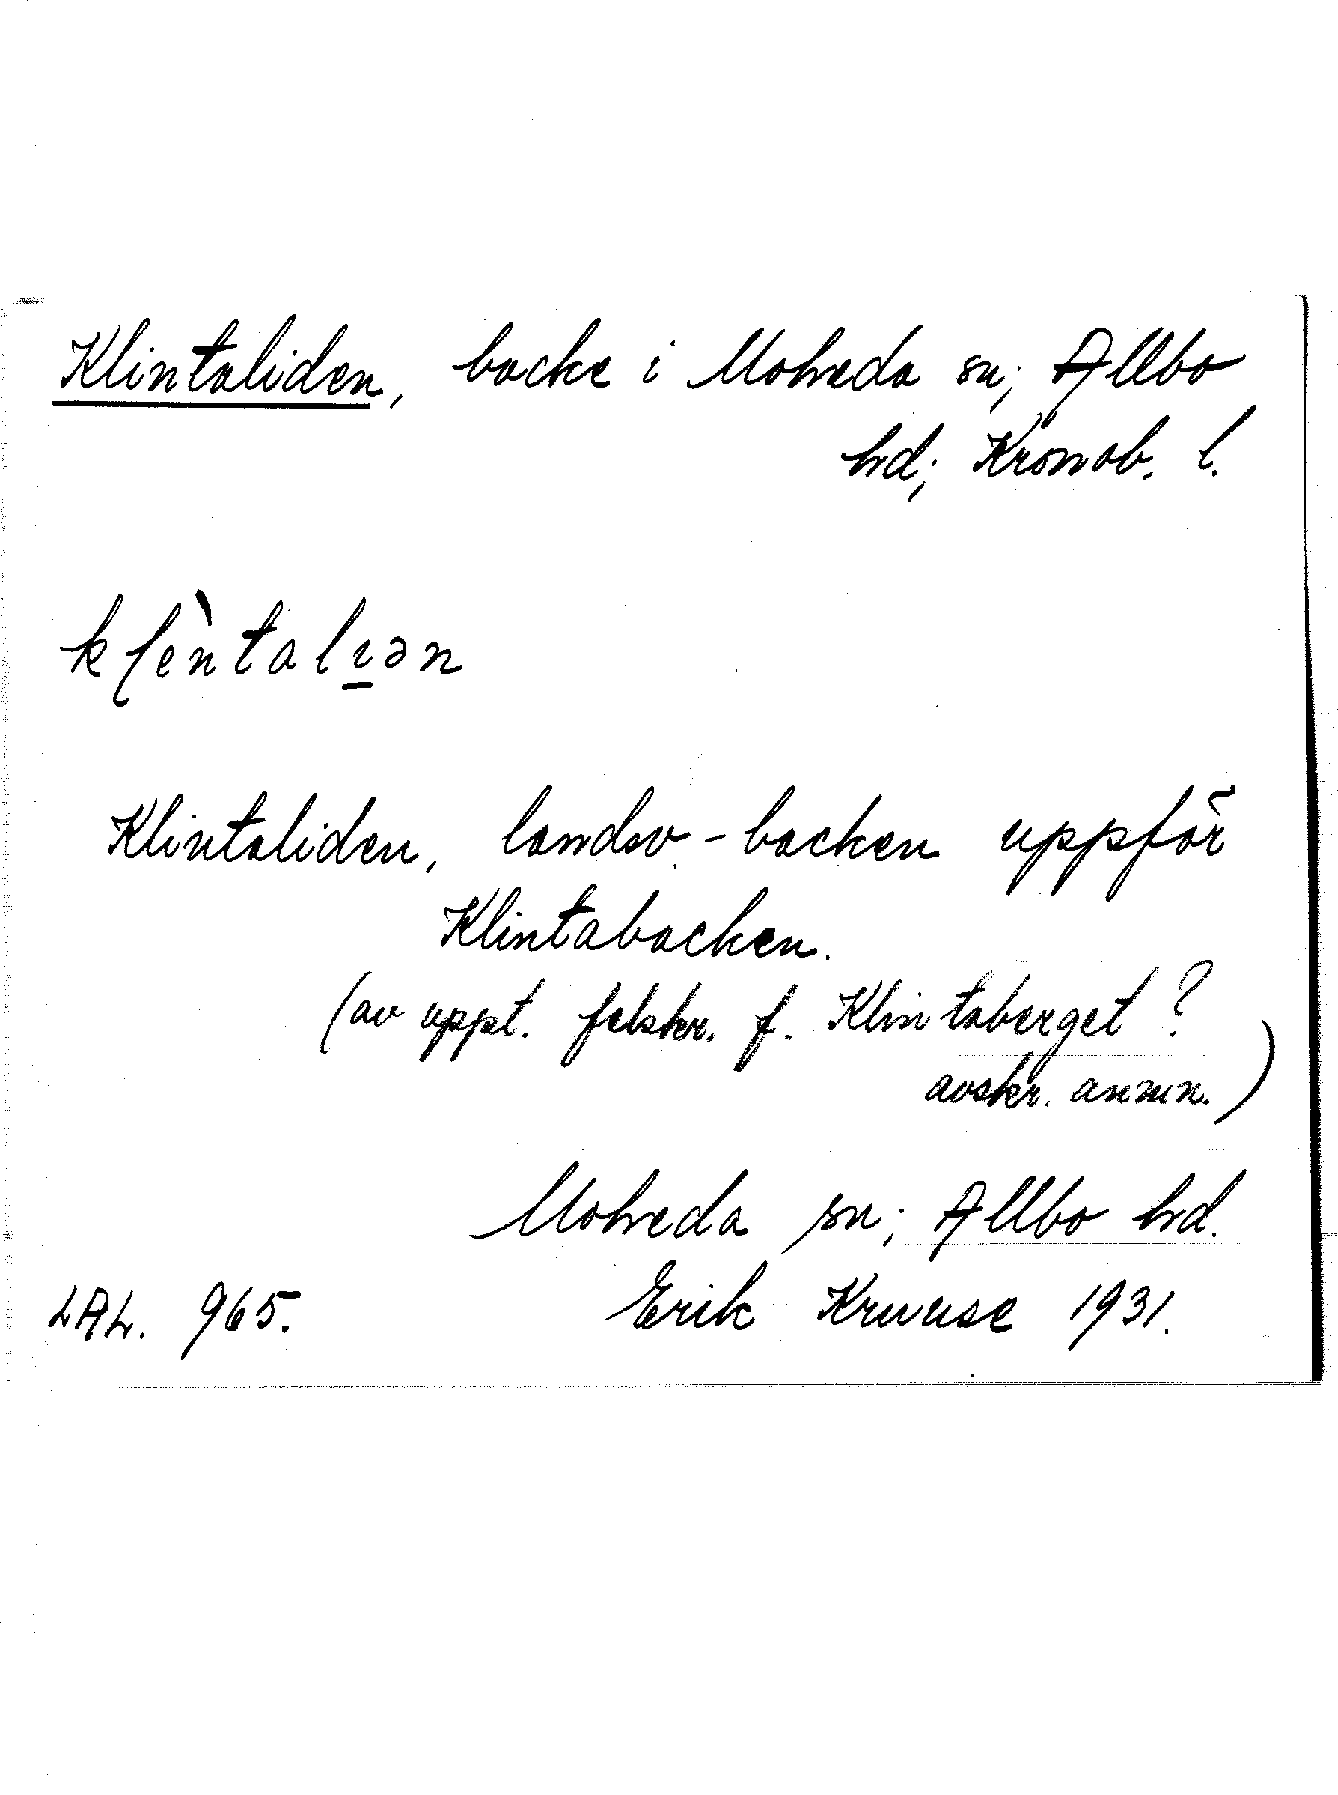 Klintaliden, backe i Moheda sn; Allbo
hd; Kronob. l.
klèntalɩ̱ən
Klintaliden, landsv-backen uppför
Klintabacken.
(av uppt. felskr. f. Klintaberget?
avskr. anmn.)
Moheda sn; Allbo hd.
LAL. 965. Erik Kruuse 1931.